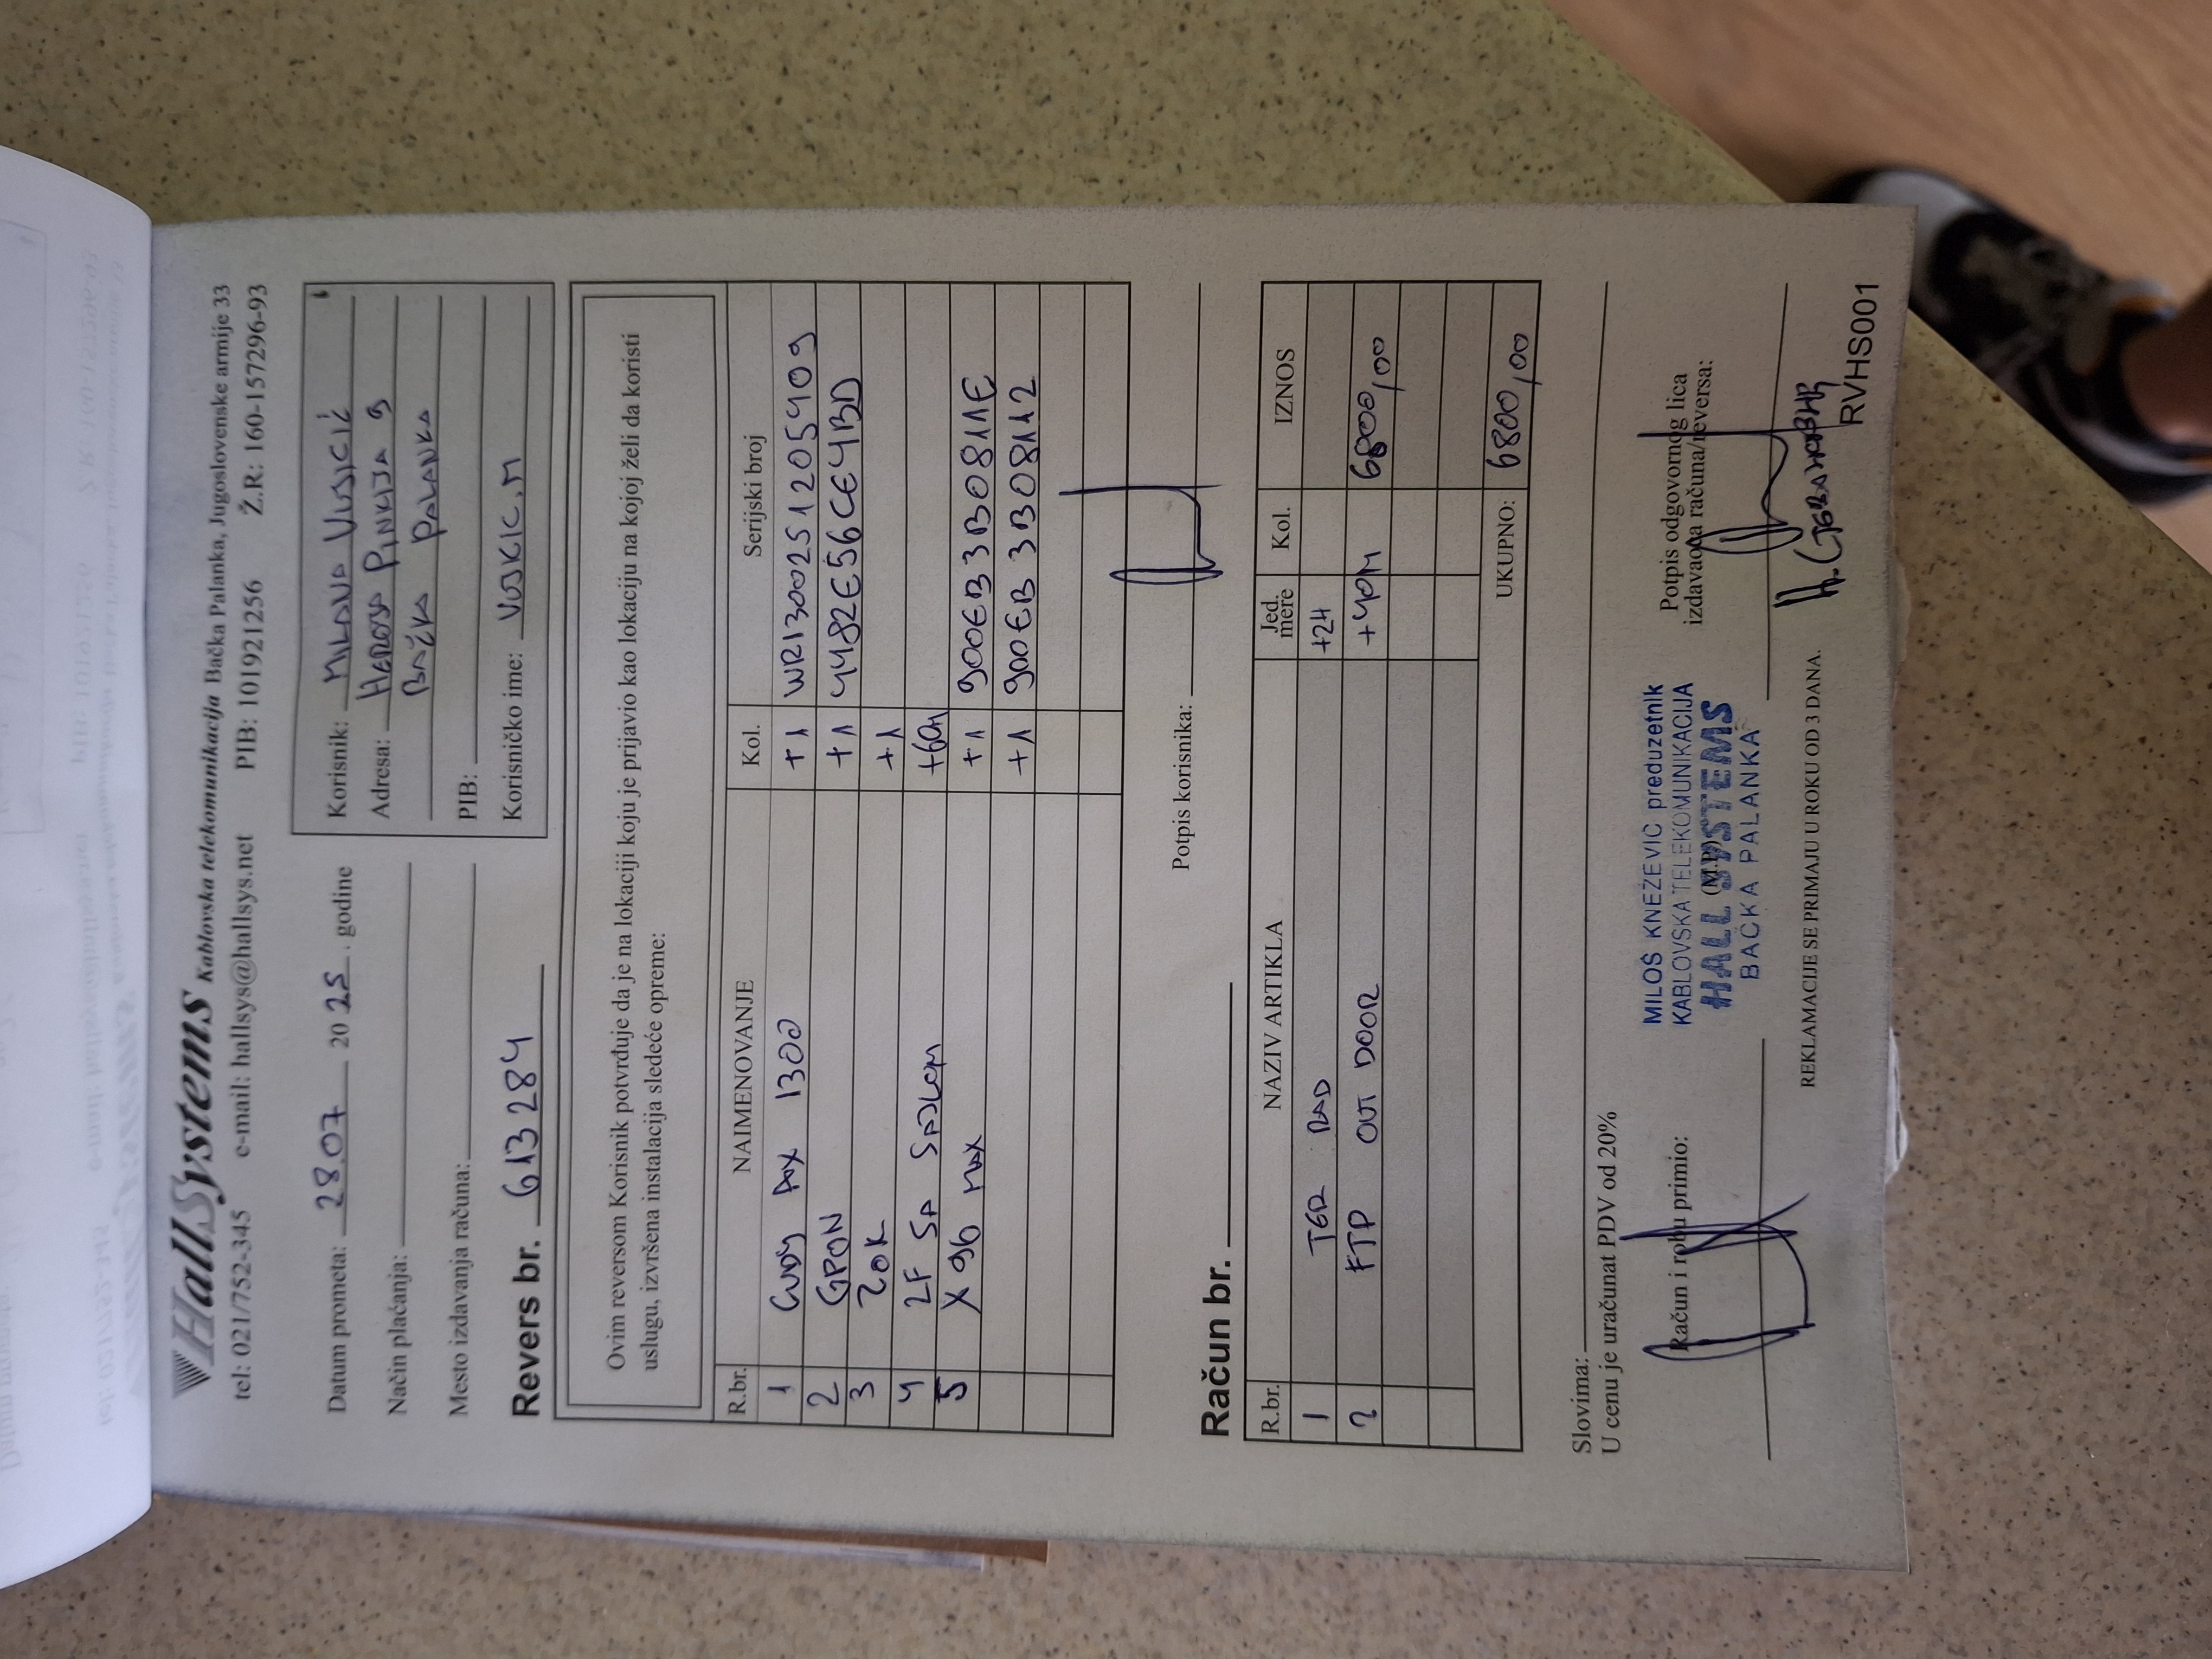 HallSystems Kablovska telekomunikacija Bačka Palanka, Jugoslovenske armije 33
tel: 021/752-345 e-mail: hallsys@hallsys.net PIB: 101921256 Ž.R: 160-157296-93
Datum prometa: 28.07 20 25. godine
Način plaćanja:
Mesto izdavanja računa:
Revers br. 613284
Korisnik: MILANA VUJICIĆ
Adresa: HEROJA PINKIJA 9
BAČKA PALANKA
PIB:
Korisničko ime: VUJICIC.M
Ovim reversom Korisnik potvrđuje da je na lokaciji koju je prijavio kao lokaciju na kojoj želi da koristi
uslugu, izvršena instalacija sledeće opreme:
R.br. NAIMENOVANJE Kol. Serijski broj
1 CUDY AX 1300 +1 WR1300251205409
2 GPON +1 4482E56CE4BD
3 ZOK +1
4 2F SA SAJLOM +60m
5 X96 MAX +1 900EB3B0811E
+1 900EB3B08112
Potpis korisnika:
Račun br.
R.br. NAZIV ARTIKLA Jed. mere Kol. IZNOS
1 TER RAD +2H
2 FTP OUT DOOR +40M 6800,00
UKUPNO: 6800,00
Slovima:
U cenu je uračunat PDV od 20%
Račun i robu primio:
MILOŠ KNEŽEVIĆ preduzetnik
KABLOVSKA TELEKOMUNIKACIJA
HALL SYSTEMS
(M.P.)
BAČKA PALANKA
Potpis odgovornog lica
izdavaoca računa/reversa:
REKLAMACIJE SE PRIMAJU U ROKU OD 3 DANA.
RVHS001